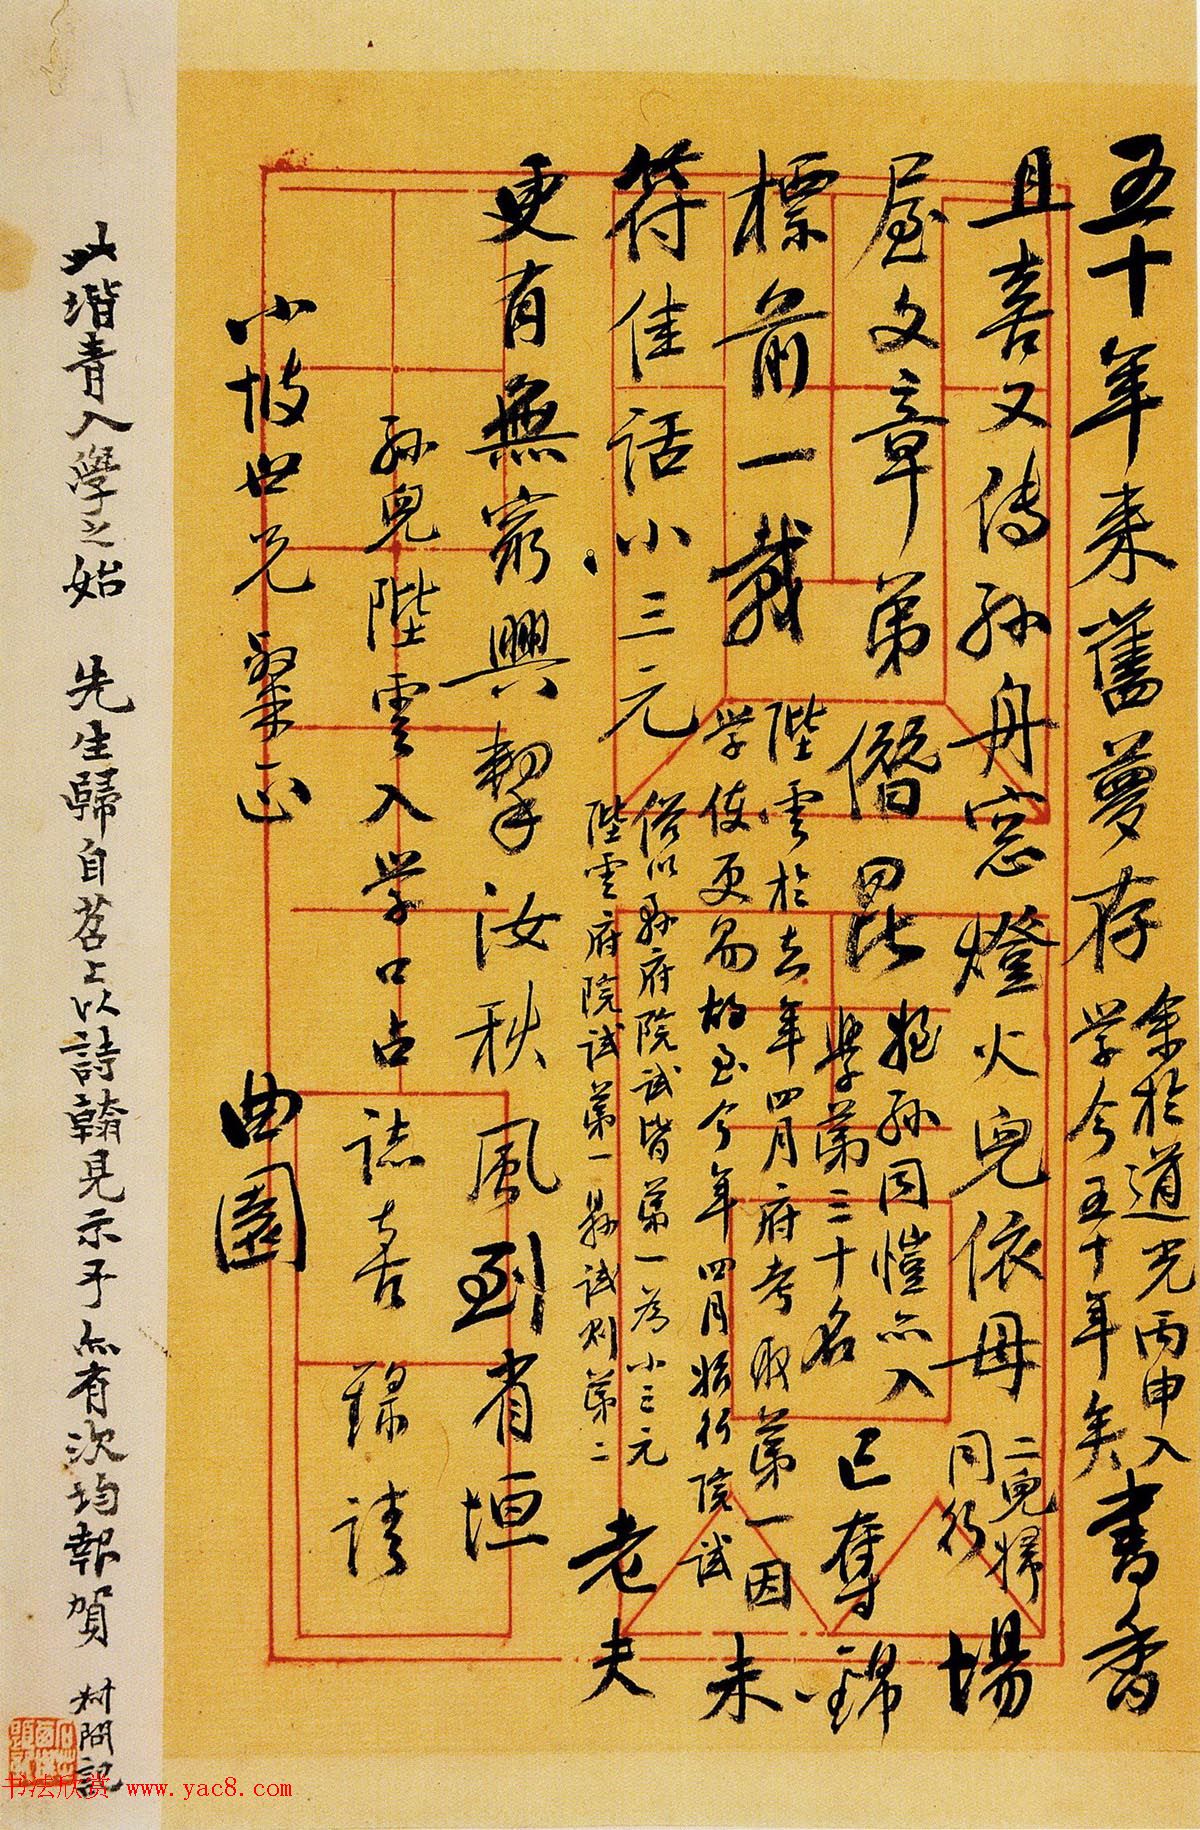 五十年来舊夢存 余於道光丙申入學今五十年矣 書香
且喜又傳孫舟窓燈火兒依母 二兒婦同行 場
屋文章弟僭昆 姪孫同愷亦入學第三十名 已奪錦
標前一載 陛雲於去年四月府考取第一因學使更易故至今年四月始行院試 未
符佳話小三元 俗以縣府院試皆第一為小三元陛雲府院試第一縣試則第二 老夫
更有無窮興挈汝秋風到省垣
孫兒陛雲入学口占誌喜録請
小坡世兄粲正
曲園
此堦青入學之始 先生歸自苕上以詩翰見示予亦有次均報賀 叔問記
书法欣赏 www.yac8.com